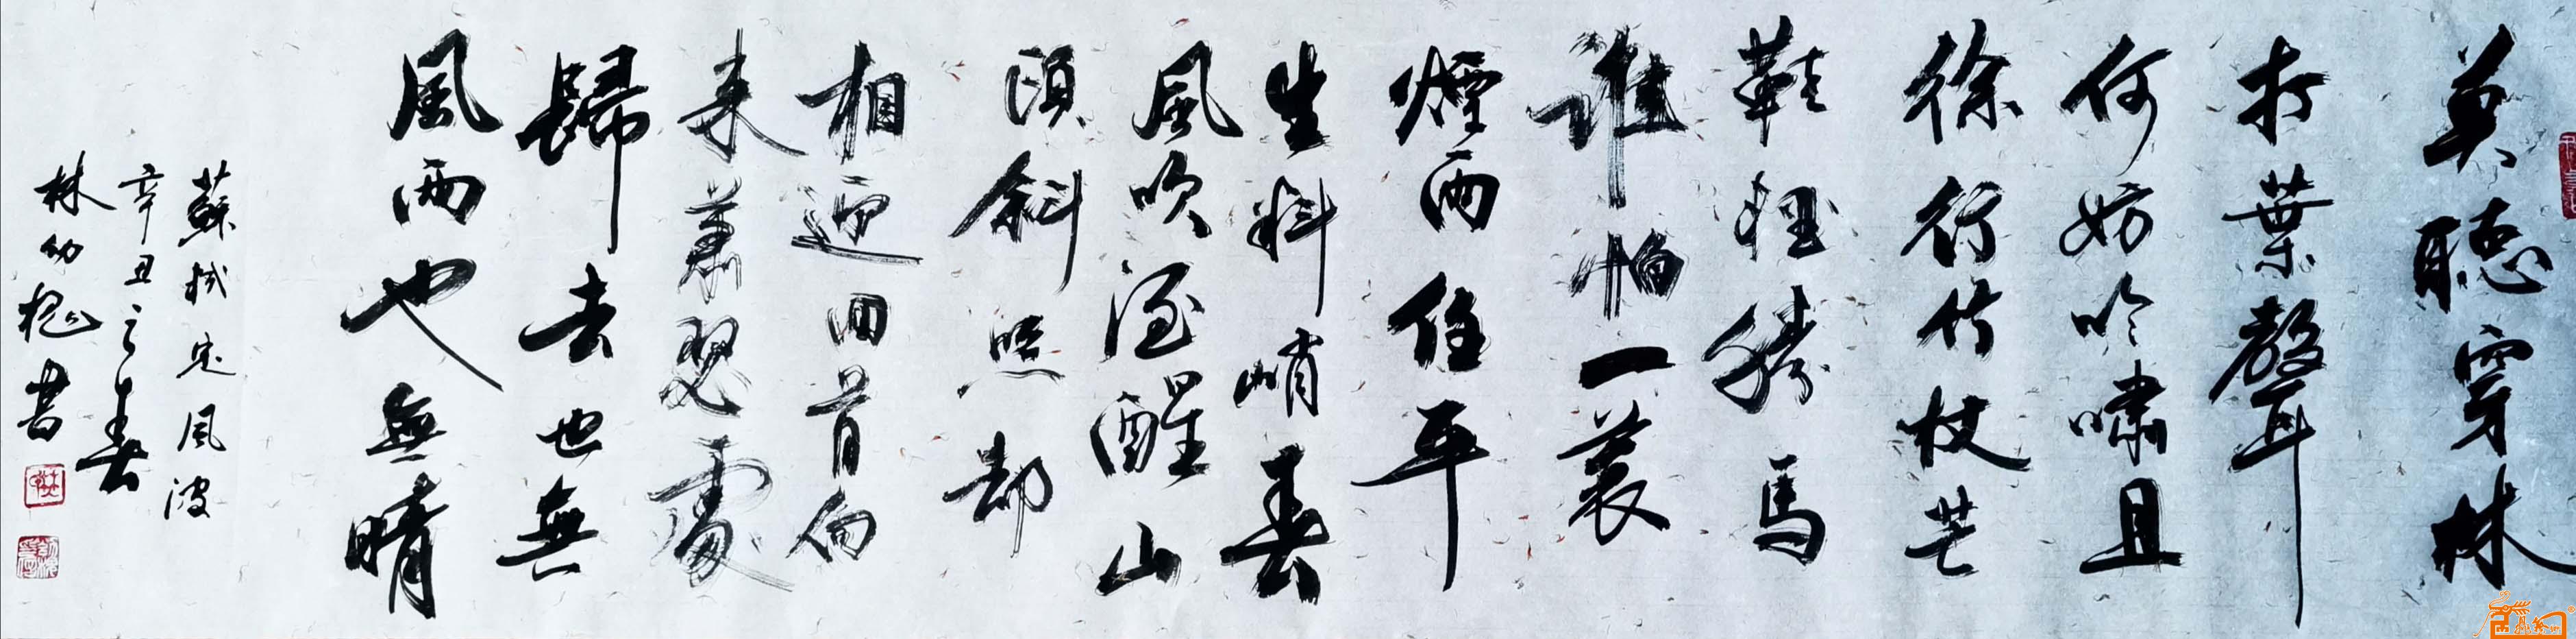 莫聽穿林
打葉聲
何妨吟嘯且
徐行竹杖芒
鞋輕勝馬
誰怕一蓑
煙雨任平
生料峭春
風吹酒醒山
頭斜照却
相迎回首向
来蕭瑟處
歸去也無
風雨也無晴
蘇軾定風波
辛丑之春
林幼槐書